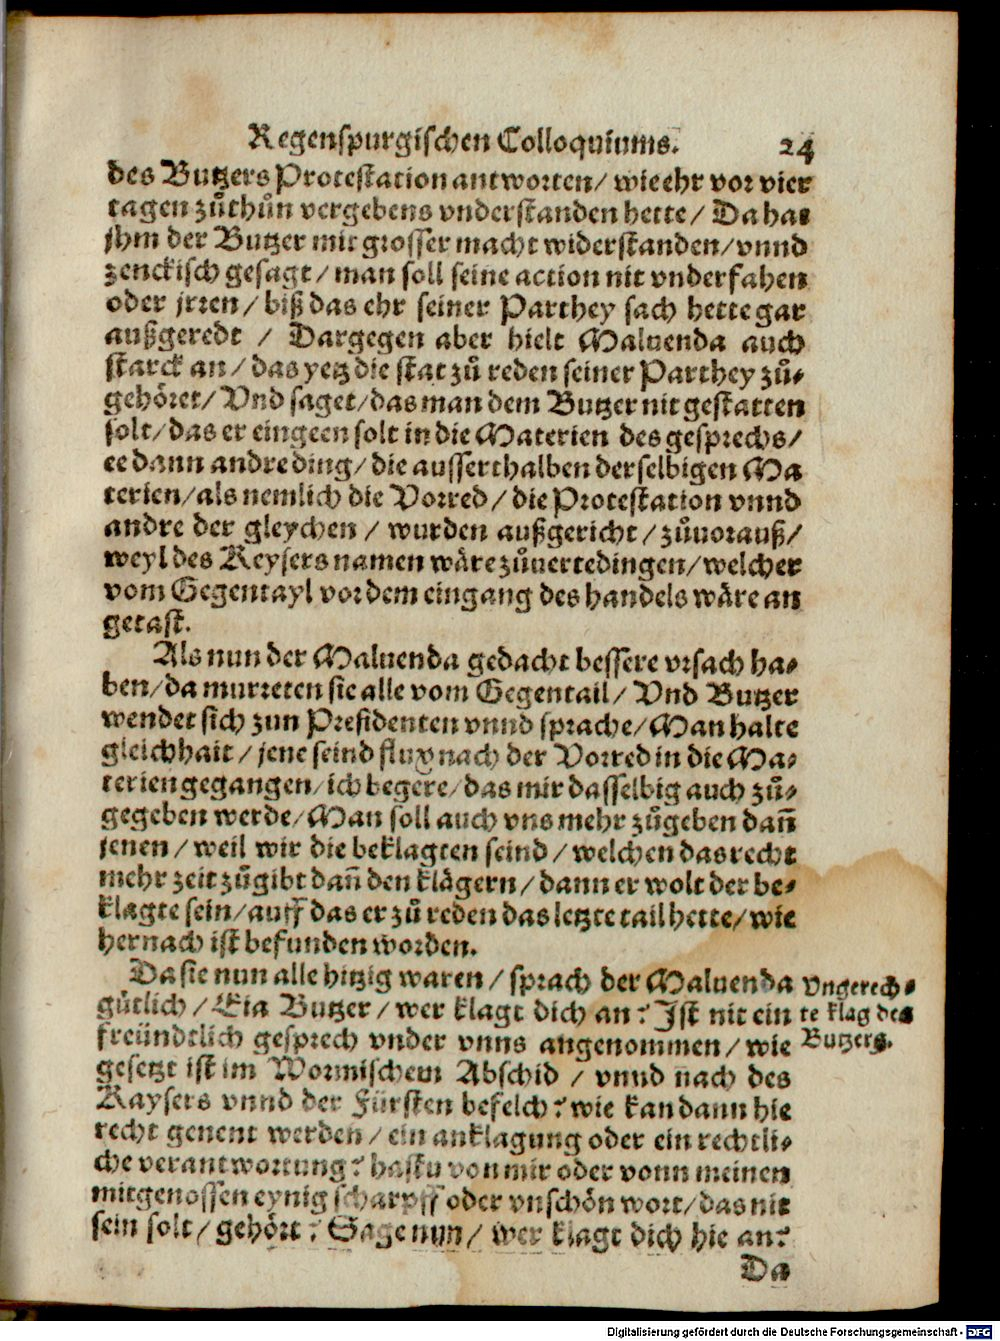 Regenspurgischen Colloquiums. 24
des Butzers Protestation antworten/ wie ehr vor vier
tagen zůthůn vergebens vnderstanden hette/ Da hat
jhm der Butzer mit grosser macht widerstanden/ vnnd
zenckisch gesagt/ man soll seine action nit vnderfahen
oder jrren/ biß das ehr seiner Parthey sach hette gar
außgeredt / Dargegen aber hielt Maluenda auch
starck an/ das yetz die stat zů reden seiner Parthey zů-
gehöret/ Vnd saget/ das man dem Butzer nit gestatten
solt/ das er eingeen solt in die Materien des gesprechs/
ee dann andre ding/ die ausserthalben derselbigen Ma
terien/ als nemlich die Vorred/ die Protestation vnnd
andre der gleychen / wurden außgericht/ zůuorauß/
weyl des Keysers namen wäre zůuertedingen/ welcher
vom Gegentayl vor dem eingang des handels wäre an
getast.
Als nun der Maluenda gedacht bessere vrsach ha-
ben/ da murreten sie alle vom Gegentail/ Vnd Butzer
wendet sich zun Presidenten vnnd sprache/ Man halte
gleichhait/ jene seind flux nach der Vorred in die Ma-
terien gegangen/ ich begere/ das mir dasselbig auch zů-
gegeben werde/ Man soll auch vns mehr zůgeben dañ
jenen/ weil wir die beklagten seind/ welchen das recht
mehr zeit zůgibt dañ den klägern/ dann er wolt der be-
klagte sein/ auff das er zů reden das letzte tail hette/ wie
hernach ist befunden worden.
Da sie nun alle hitzig waren/ sprach der Maluenda
gütlich/ Eia Butzer/ wer klagt dich an? Ist nit ein
freündtlich gesprech vnder vnns angenommen/ wie
gesetzt ist im Wormischem Abschid / vnnd nach des
Kaysers vnnd der Fürsten befelch? wie kan dann hie
recht genent werden/ ein anklagung oder ein rechtli-
che verantwortung? hastu von mir oder vonn meinen
mitgenossen eynig scharpff oder vnschön wort/ das nit
sein solt/ gehört? Sage nun/ wer klagt dich hie an?
Da
Vngerech-
te klag des
Butzers.
Digitalisierung gefördert durch die Deutsche Forschungsgemeinschaft - DFG